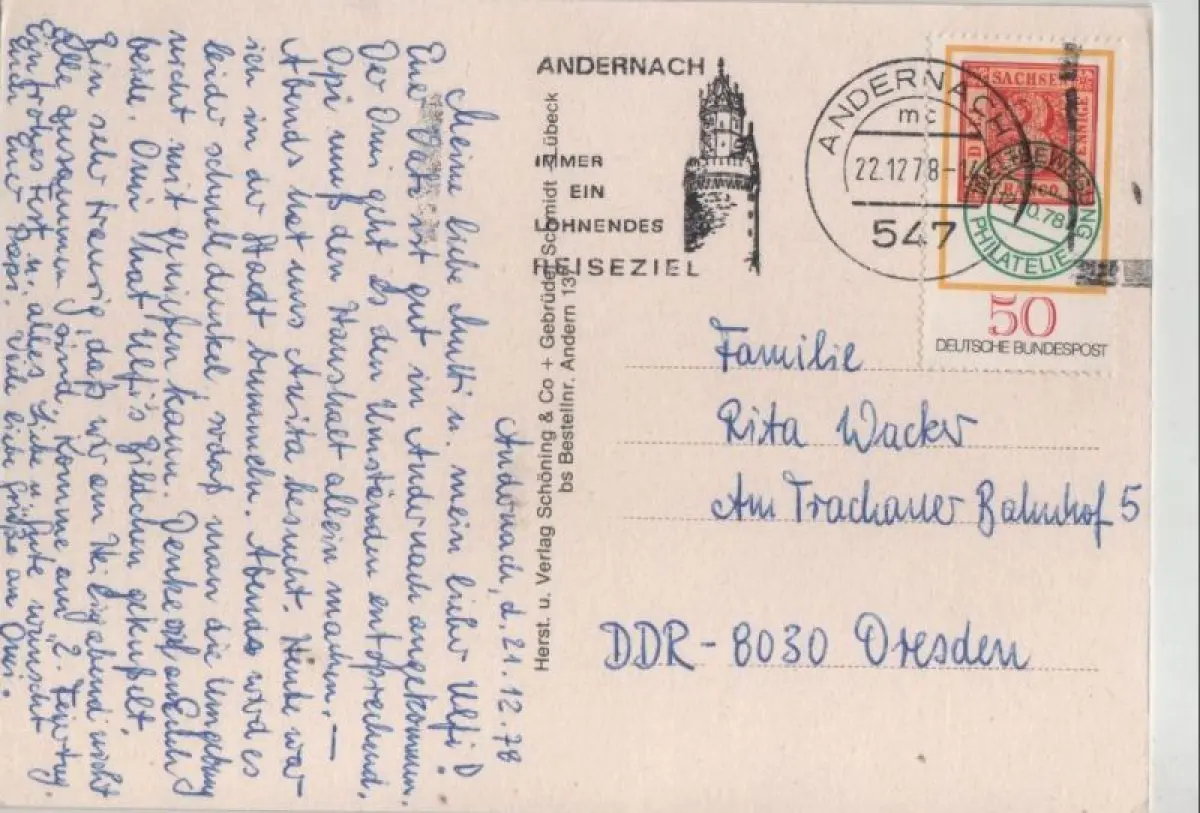 Andernach, d. 21.12.78
Meine liebe Mutti u. mein lieber Ulfi!
Euer Vati ist gut in Andernach angekommen.
Der Omi geht es den Umständen entsprechend,
Opi muß den Haushalt allein machen. —
Abends hat uns Anita besucht. Heute war
ich in der Stadt bummeln. Abends wird es
leider schnell dunkel, sodaß man die Umgebung
nicht mit genießen kann. Denke oft an Euch
beide. Omi hat Ulfi's Bildchen geküßt.
Bin sehr traurig, daß wir am Heiligabend nicht
alle zusammen sind. Komme am 2. Feiertag.
Ein frohes Fest u. alles Liebe u. Gute wünscht
Euch Euer Papi. Viele liebe Grüße an Omi.
Herst. u. Verlag Schöning & Co + Gebrüder Schmidt - Lübeck
bs Bestellnr. Andern 139
ANDERNACH
IMMER
EIN
LOHNENDES
REISEZIEL
ANDERNACH
mc
22.12.78-14
547
SACHSEN
3
PFENNIGE
FRANCO
PHILATELIE
50
DEUTSCHE BUNDESPOST
Familie
Rita Wacker
Am Trachauer Bahnhof 5
DDR-8030 Dresden